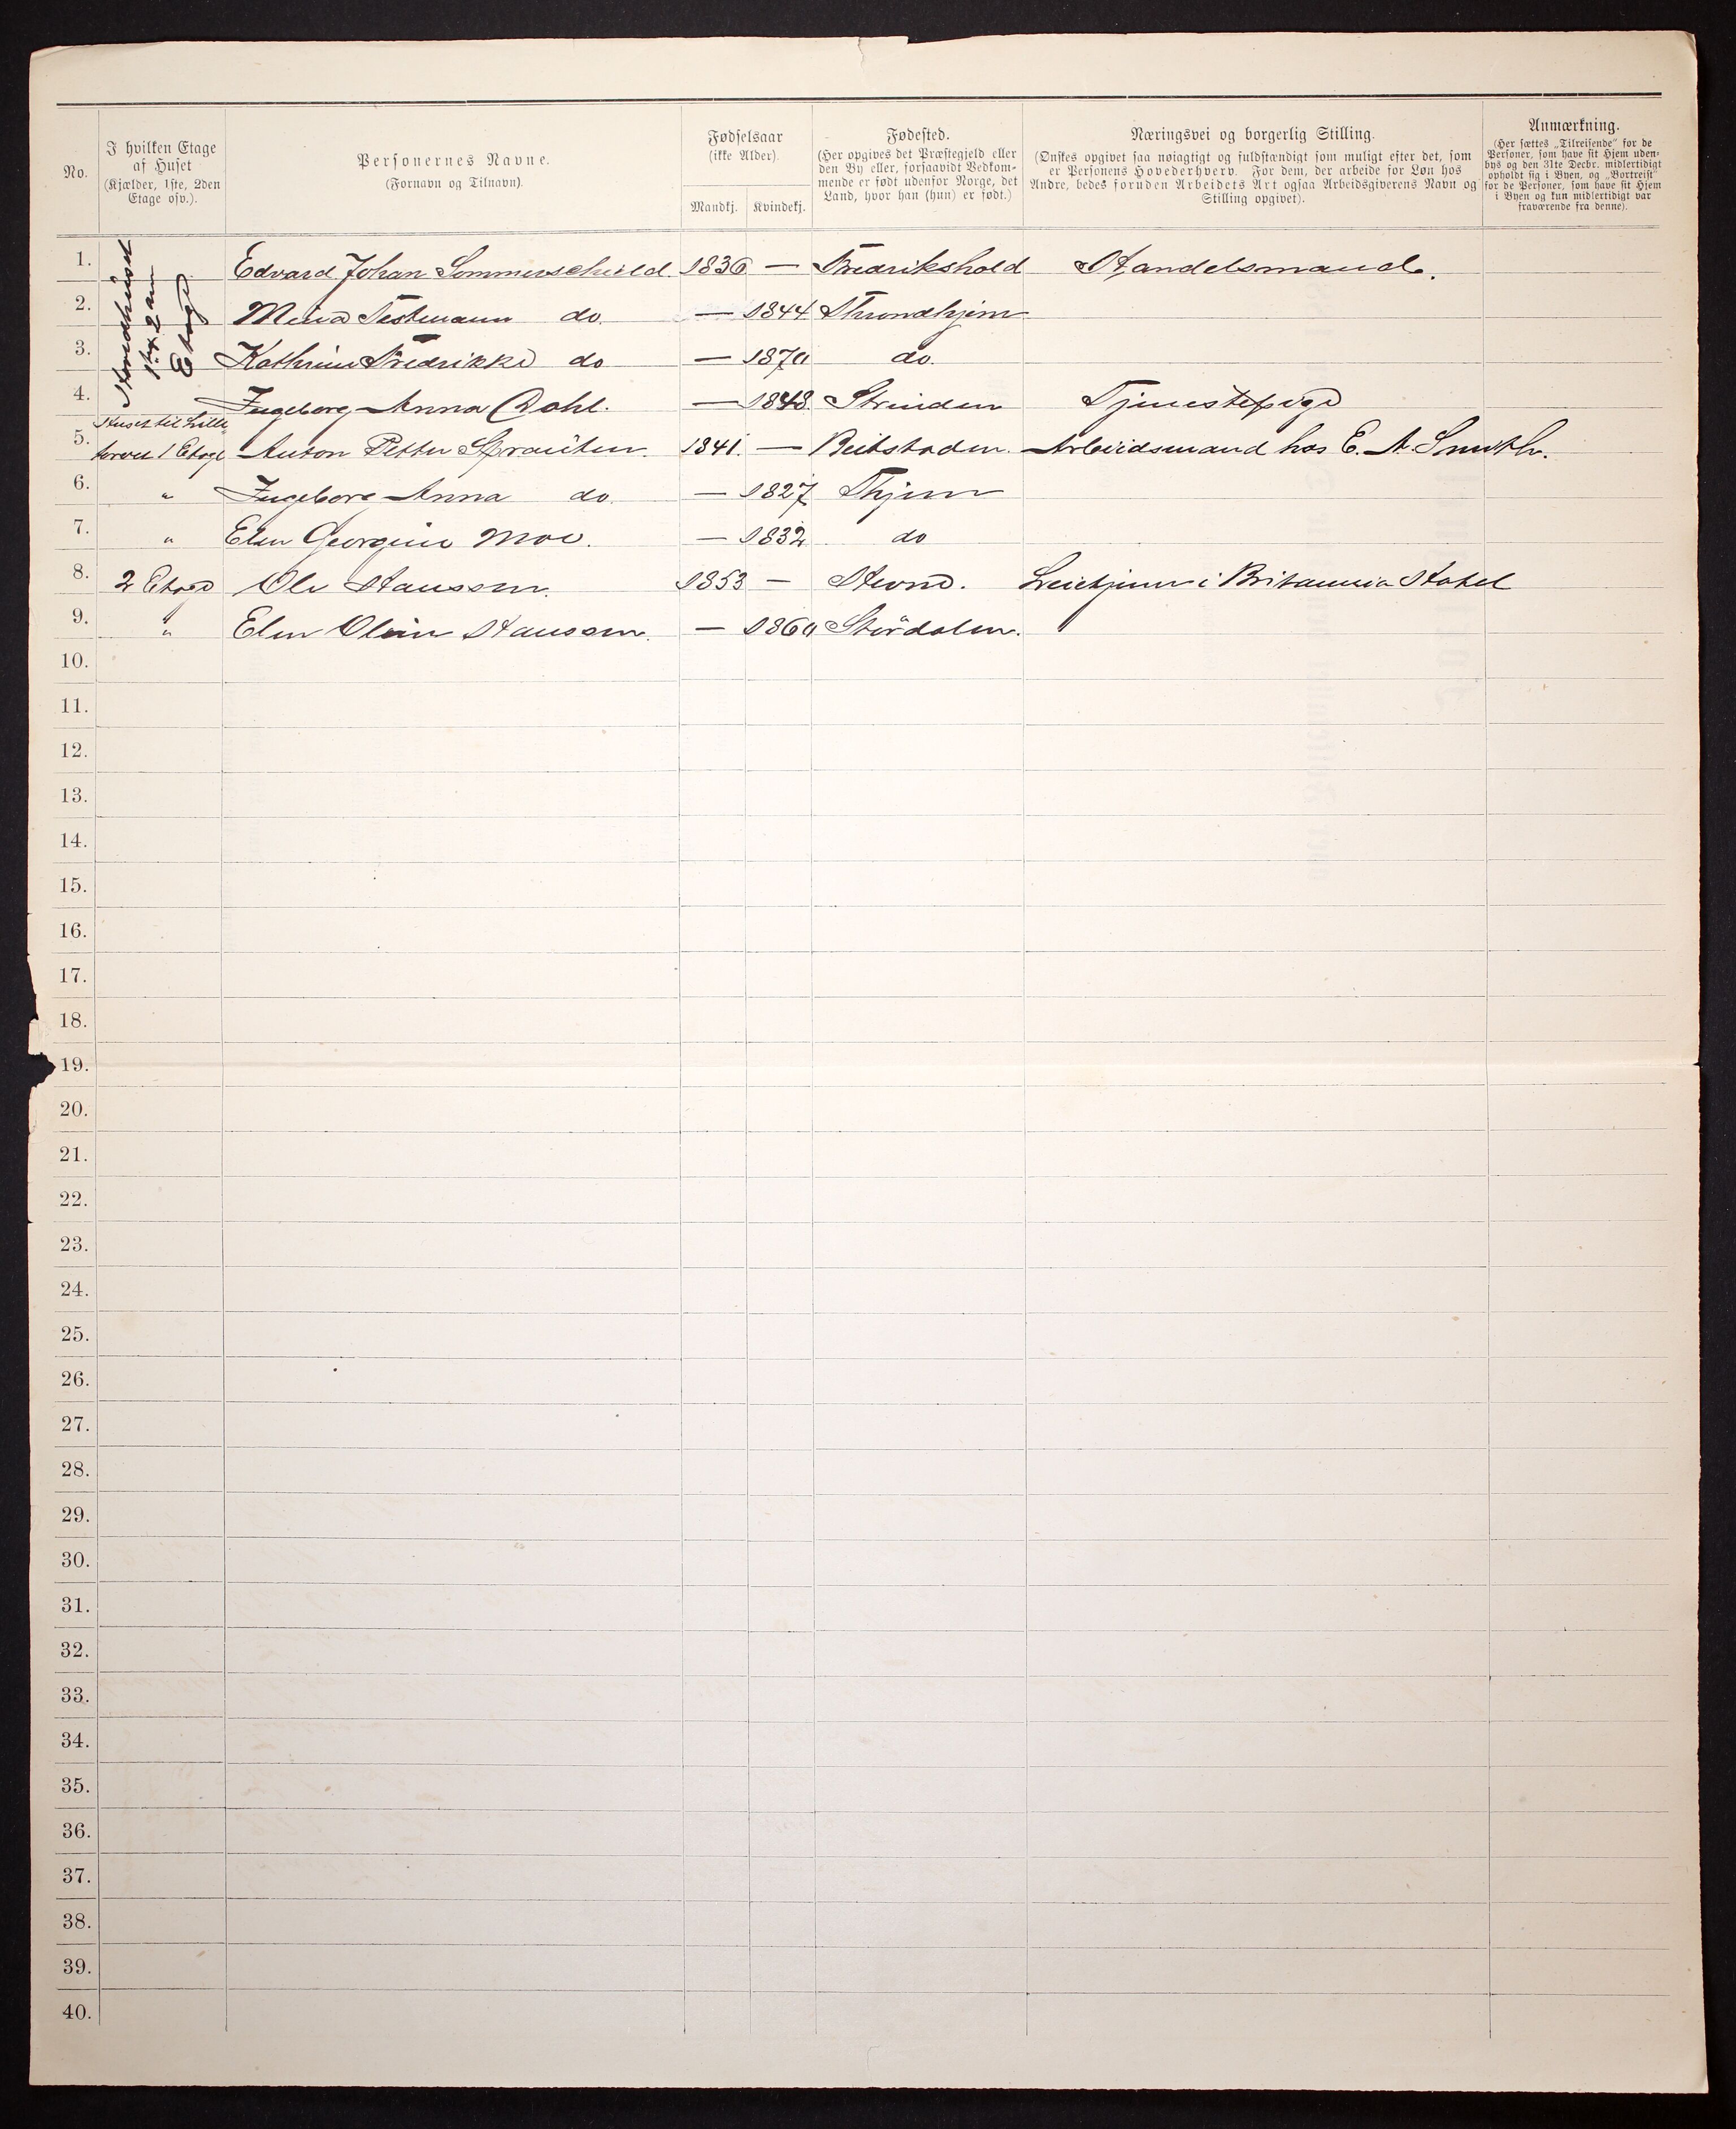 No.
I hvilken Etage af Huset
(Kjælder, 1ste, 2den Etage osv.).
Personernes Navne.
(Fornavn og Tilnavn).
Fødselsaar
(ikke Alder).
Mandkj. Kvindekj.
Fødested.
(Her opgives det Præstegjeld eller
den By eller, forsaavidt Vedkom-
mende er født udenfor Norge, det
Land, hvor han (hun) er født.)
Næringsvei og borgerlig Stilling.
(Ønskes opgivet saa nøiagtigt og fuldstændigt som muligt efter det, som
er Personens Hovederhverv. For dem, der arbeide for Løn hos
Andre, bedes foruden Arbeidets Art ogsaa Arbeidsgiverens Navn og
Stilling opgivet).
Anmærkning.
(Her sættes „Tilreisende" for de
Personer, som have sit Hjem uden-
bys og den 31te Decbr. midlertidigt
opholdt sig i Byen, og „Bortreist"
for de Personer, som have sit Hjem
i Byen og kun midlertidigt var
fraværende fra denne).
Hovedhuset
Etage
1. Edvard Johan Sommerschield 1836 — Fredrikshald Handelsmand.
2. do. — 1844 Throndhjem
3. Kathrine Fredrikke do — 1870 do.
4. Ingeborg Anna Dahl. — 1848. Strinden Tjenestepige
Huset til Lille
5. torvet 1 Etage Anton Petter Sprauten. 1841. — Beitstaden. Arbeidsmand hos E. A. Smith.
6. " Ingeborg Anna do. — 1827 Thjem
7. " Elen Georgine Moe. — 1832 do
8. 2 Etage Ole Hanssen. 1853 — Hevne. i Britannia Hotel
9. " Elen Oline Hanssen. — 1860 Stördalen.
10.
11.
12.
13.
14.
15.
16.
17.
18.
19.
20.
21.
22.
23.
24.
25.
26.
27.
28.
29.
30.
31.
32.
33.
34.
35.
36.
37.
38.
39.
40.